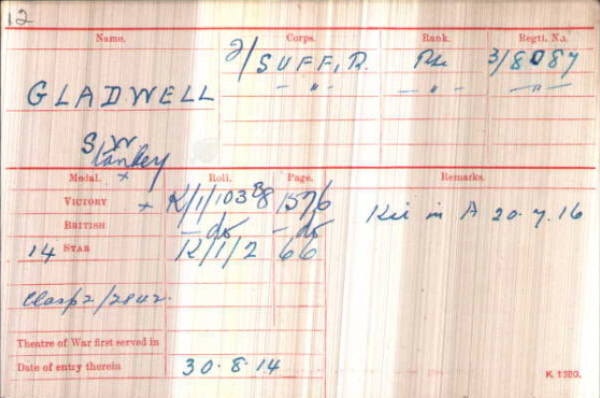 12
Name. Corps. Rank. Regtl. No.
GLADWELL 2/SUFF. R. Pte 3/8087
— " — — " — — " —
S. W.
Stanley
Medal. Roll. Page. Remarks.
VICTORY K/1/103 B8 1576 Kil in A 20.7.16
BRITISH — do — do
14 STAR K/1/2 66
Clasp 2/2842.
Theatre of War first served in
Date of entry therein 30.8.14
K. 1380.